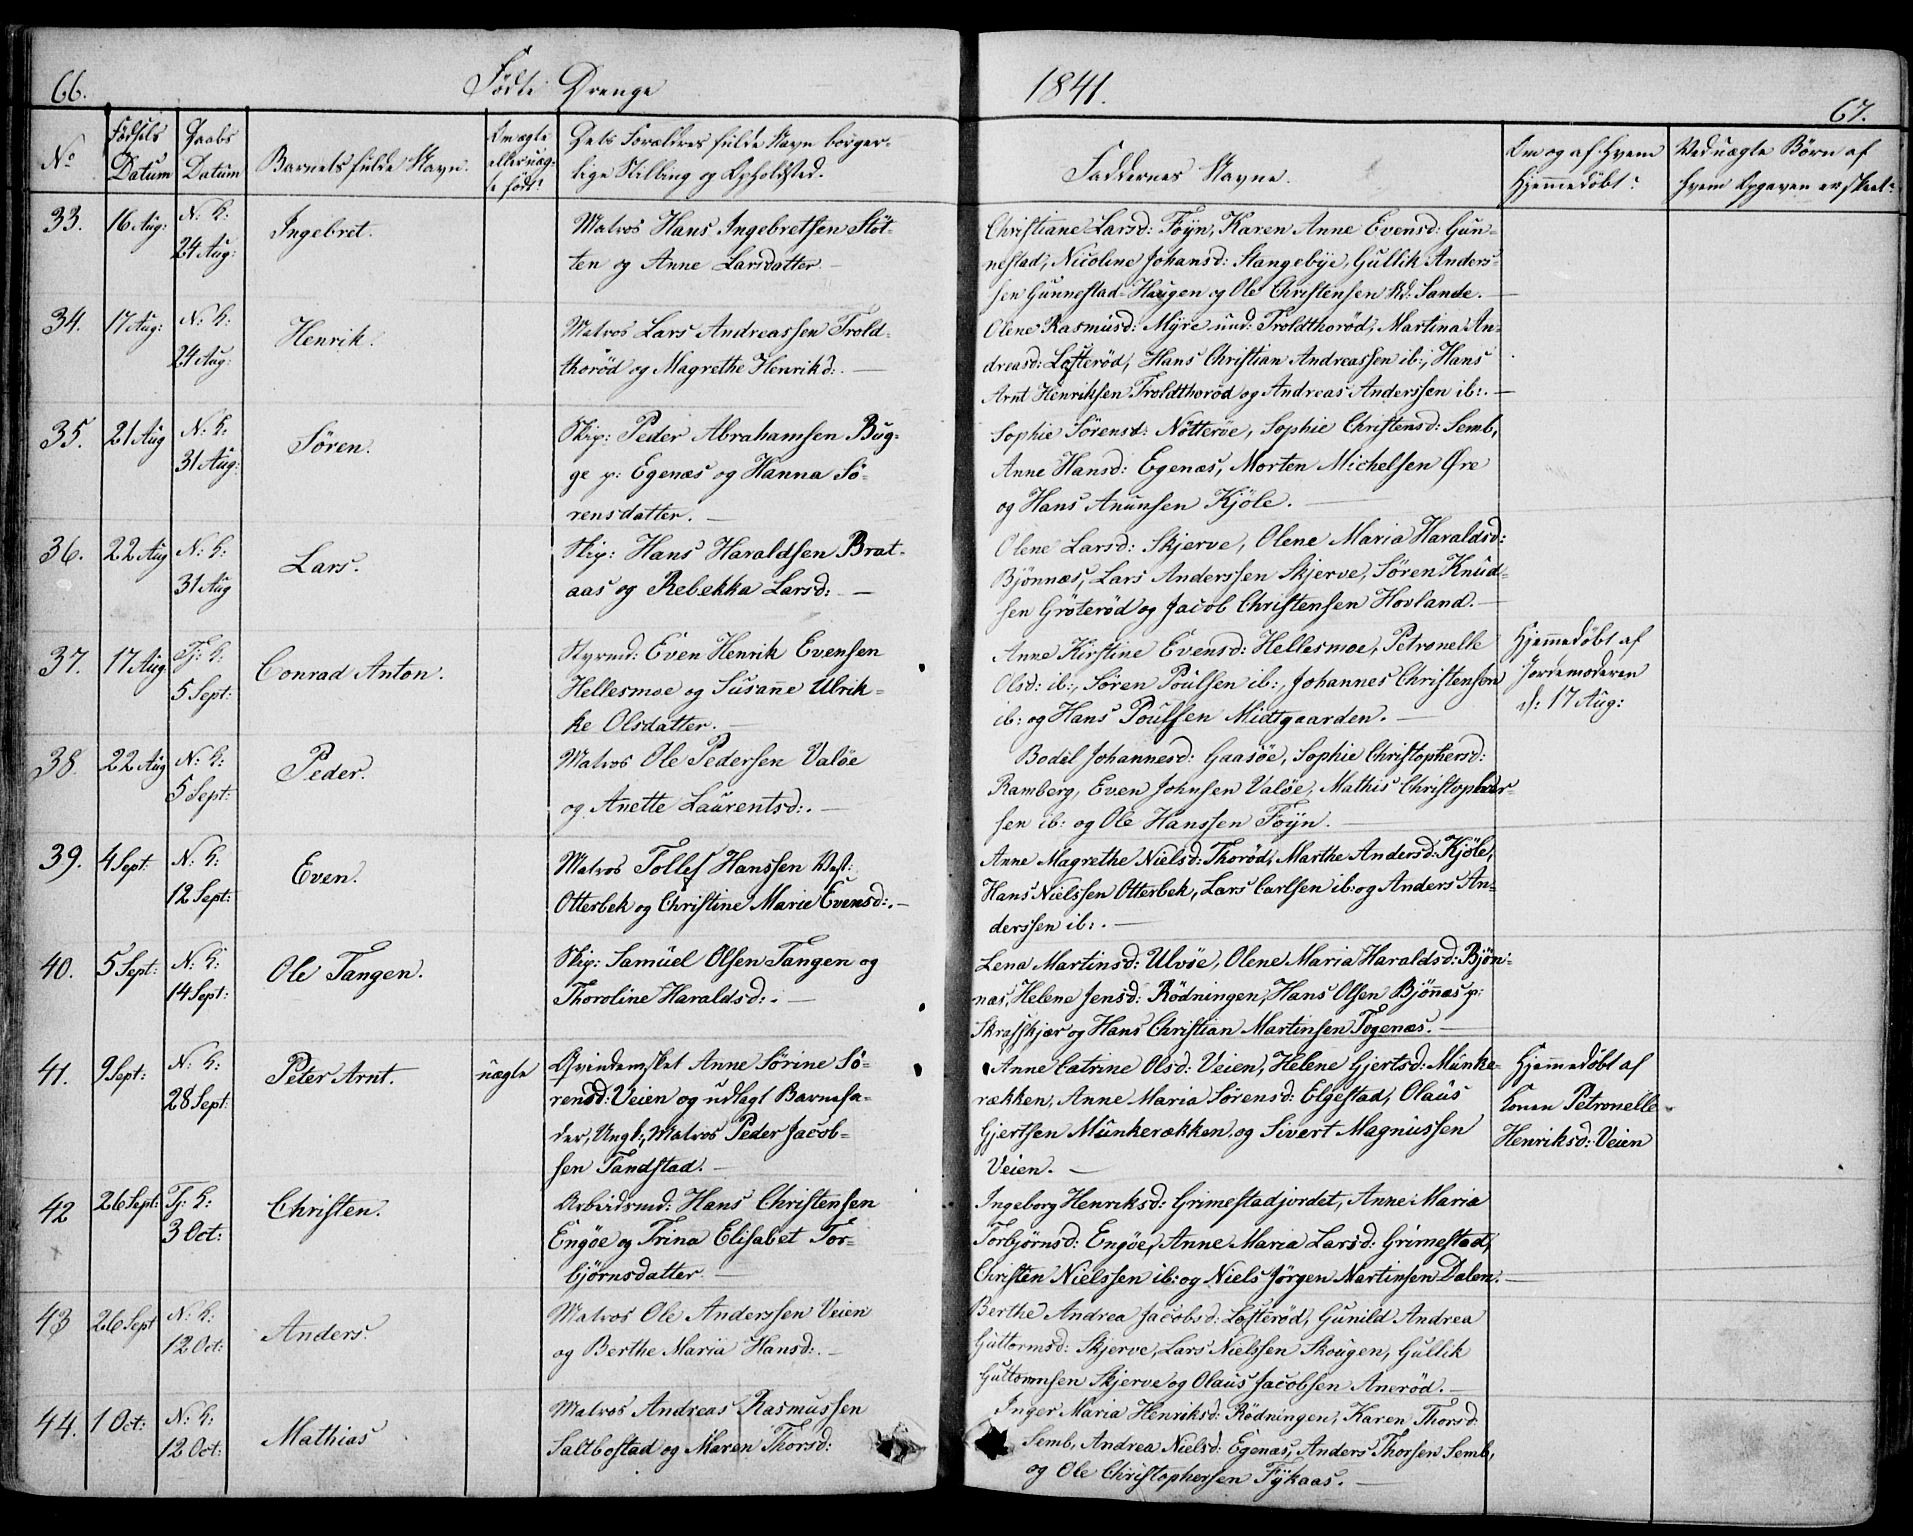 66.
Födte Drenge
1841.
67.
No
Födsels Datum
Daabs Datum
Barnets fulde Navn.
Om ægte eller uægte födt?
Dets Forældres fulde Navn borger-
lige Stilling og Opholdsted.
Faddernes Navne.
Om og af Hvem
Hjemmedöbt?
Ved uægte Börn af
hvem Opgaven er skeet?
33. 16 Aug: N: K: 24 Aug: Ingebret.
Matros Hans Ingebretsen Stöt-
ten og Anne Larsdatter. —
Christiane Larsd: Föyn, Karen Anne Evensd: Gun-
nestad, Nicoline Johansd: Stangebye, Gullik Anders-
sen Gunnestad-Haugen og Ole Christensen Nd: Sande. —
34. 17 Aug: N: K: 24 Aug: Henrik.
Matros Lars Andreassen Trold-
thoröd og Magrethe Henrikd: —
Olene Rasmusd: Myre und: Troldthoröd, Martina An-
dreasd: Lofteröd, Hans Christian Andreassen ib:, Hans
Arnt Henriksen Troldthoröd og Andreas Anderssen ib:. —
35. 21 Aug N: K: 31 Aug: Sören.
Skip: Peder Abrahamsen Bug-
ge p: Egenæs og Hanna Sö-
rensdatter. —
Sophie Sörensd: Nötteröe, Sophie Christensd: Semb,
Anne Hansd: Egenæs, Morten Michelsen Øre
og Hans Anunsen Kjöle. —
36. 22 Aug N: K: 31 Aug Lars.
Skip: Hans Haraldsen Brat-
aas og Rebekka Larsd: —
Olene Larsd: Skjerve, Olene Maria Haraldsd:
Björnnæs, Lars Anderssen Skjerve, Sören Knud-
sen Gröteröd og Jacob Christensen Hovland. —
37. 17 Aug Tj: K: 5 Sept: Conrad Anton.
Styrmd: Even Henrik Evensen
Hellesmoe og Susanne Ulrik-
ke Olsdatter. —
Anne Kirstine Evensd: Hellesmoe, Petronelle
Olsd: ib:, Sören Poulsen ib:, Johannes Christensen
ib: og Hans Poulsen Midtgaarden. —
Hjemmedöbt af
Jordemoderen
d: 17 Aug:
38. 22 Aug N: K: 5 Sept: Peder.
Matros Ole Pedersen Valöe
og Anette Laurentsd:. —
Bodel Johannesd: Gaasöe, Sophie Christophersd:
Ramberg, Even Johnsen Valöe, Mathis Christopher-
sen ib: og Ole Hanssen Föyn. —
39. 4 Sept N: K: 12 Sept: Even.
Matros Tollef Hanssen Vest:
Otterbek og Christine Marie Evensd:. —
Anne Magrethe Nielsd: Thoröd, Marthe Andersd: Kjöle,
Hans Nielssen Otterbek, Lars Carlsen ib: og Anders An-
derssen ib:. —
40. 5 Sept: N: K: 14 Sept: Ole Tangen.
Skip: Samuel Olsen Tangen og
Thoroline Haraldsd:. —
Lena Martinsd: Ulvöe, Olene Maria Haraldsd: Bjön-
næs, Helene Jensd: Rödningen, Hans Olsen Bjönnæs p:
Skrafskjær og Hans Christian Martinsen Togenæs. —
41. 9 Sept: N: K: 28 Sept: Peter Arnt. uægte
Qvindemsket Anne Sörine Sö-
rensd: Veien og udlagt Barnefa-
der, Ungk:, Matros Peder Jacob-
sen Tandstad. —
Anne Catrine Olsd: Veien, Helene Gjertsd: Munke-
rækken, Anne Maria Sörensd: Elgestad, Olaus
Gjertsen Munkerækken og Sivert Magnussen
Veien. —
Hjemmedöbt af
Konen Petronelle
Henriksd: Veien
42 26 Sept: Tj: K: 3 Oct: Christen.
Arbeidsmd: Hans Christensen
Engöe og Trina Elisabet Tor-
björnsdatter. —
Ingeborg Henriksd: Grimestadjordet, Anne Maria
Torbjörnsd: Engöe, Anne Maria Larsd: Grimestad,
Christen Nielssen ib: og Niels Jörgen Martinsen Dalen. —
43 26 Sept N: K: 12 Oct: Anders.
Matros Ole Anderssen Veien
og Berthe Maria Hansd:. —
Berthe Andrea Jacobsd: Lofteröd, Gunild Andrea
Guttormsd: Skjerve, Lars Nielssen Skougen, Gullik
Guttormsen Skjerve og Olaus Jacobsen Aneröd. —
44. 1 Oct: N: K: 12 Oct: Mathias
Matros Andreas Rasmussen
Saltbostad og Maren Thorsd:
Inger Maria Henriksd: Rödningen, Karen Thorsd:
Semb, Andrea Nielsd: Egenæs, Anders Thorsen Semb,
og Ole Christophersen Fykaas. —